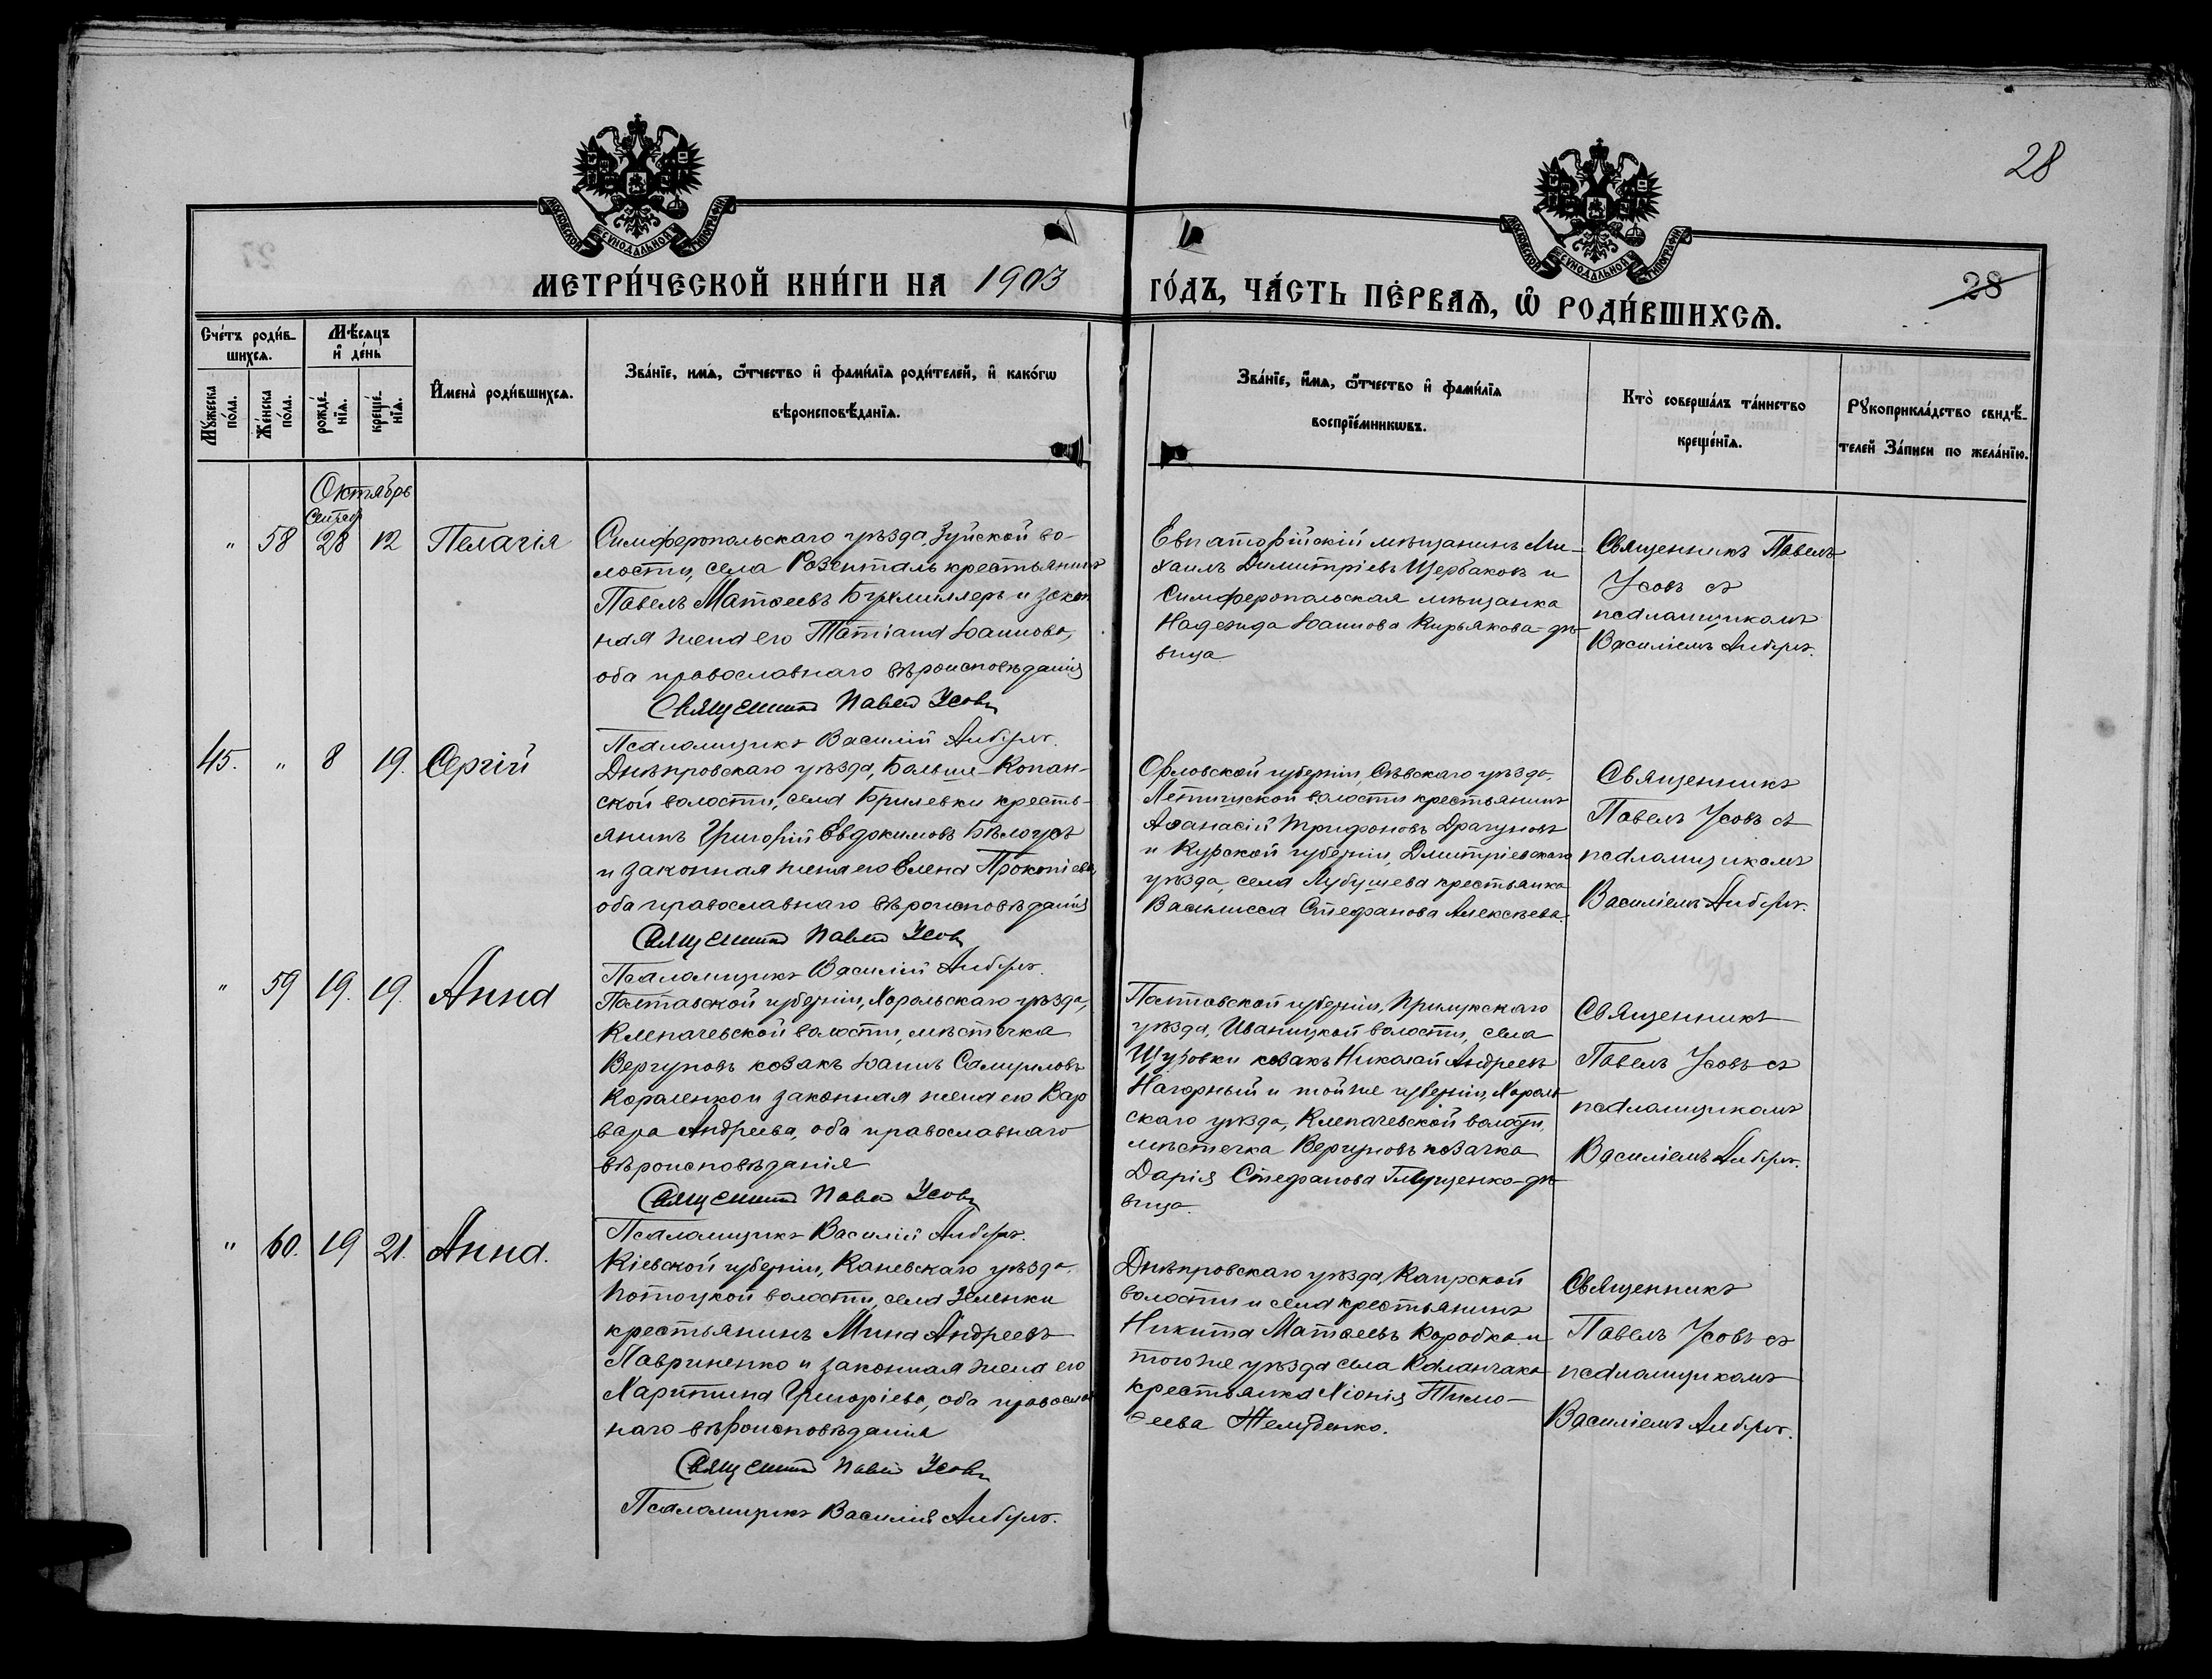 28
МОСКОВСКОЙ СѴНОДАЛЬНОЙ ТИПОГРАФІИ
МОСКОВСКОЙ СѴНОДАЛЬНОЙ ТИПОГРАФІИ
МЕТРИ́ЧЕСКОЙ КНИ́ГИ НА 1903
ГО́ДЪ, ЧА́СТЬ ПЕ́РВАѦ, Ѽ РОДИ́ВШИХСѦ.
28
Сче́тъ роди́в-
шихсѧ.
Мꙋ́жеска по́ла.
Же́нска по́ла.
Мѣ́сѧцъ и҆ де́нь
рожде́нїѧ.
креще́нїѧ.
И҆мена̀ роди́вшихсѧ.
Зва́нїе, и҆́мѧ, ѻ҆́тчество и҆ фами́лїѧ роди́телей, и҆ како́гѡ
вѣроисповѣ́данїѧ.
Зва́нїе, и҆́мѧ, ѻ҆́тчество и҆ фами́лїѧ
воспрїе́мникѡвъ.
Кто̀ соверша́лъ та́инство
креще́нїѧ.
Рꙋкоприкла́дство свидѣ́-
телей За́писи по жела́нїю.
Октябрь
Сентяб
" 58 28 12 Пелагія
Симферопольскаго уѣзда, Зуйской во-
лости, села Розенталь крестьянинъ
Павелъ Матѳеевъ Бухмиллеръ и закон
ная жена его Татіана Іоаннова,
оба православнаго вѣроисповѣданія
Священникъ Павелъ Усовъ
Псаломщикъ Василій
Евпаторійскій мѣщанинъ Ми-
хаилъ Димитріевъ Щербаковъ и
Симферопольская мѣщанка
Надежда Іоаннова Кирьякова-дѣ-
вица
Священникъ Павелъ
Усовъ съ
псаломщикомъ
Василіемъ
45. " 8 19. Сергій
Днѣпровскаго уѣзда, Больше-Копан-
ской волости, села Брилевки кресть-
янинъ Григорій Евдокимовъ Бѣлоусъ
и законная жена его Елена Прокопіева,
оба православнаго вѣроисповѣданія
Священникъ Павелъ Усовъ
Псаломщикъ Василій
Орловской губерніи, Сѣвскаго уѣзда,
волости крестьянинъ
Аѳанасій Трифоновъ Драгуновъ
и Курской губерніи, Дмитріевскаго
уѣзда, села крестьянка
Василисса Стефанова Алексѣева.
Священникъ
Павелъ Усовъ съ
псаломщикомъ
Василіемъ
" 59 19. 19. Анна
Полтавской губерніи, Хорольскаго уѣзда,
Клепачевской волости, мѣстечка
Вергуновъ козакъ Іоаннъ Самуиловъ
Короленко и законная жена его Вар
вара Андреева, оба православнаго
вѣроисповѣданія
Священникъ Павелъ Усовъ
Псаломщикъ Василій
Полтавской губерніи, Прилукскаго
уѣзда, Иваницкой волости, села
Щуровки козакъ Николай Андреевъ
Нагорный и той же губерніи, Хороль-
скаго уѣзда, Клепачевской волости,
мѣстечка Вергуновъ козачка
Дарія Стефанова Глущенко-дѣ-
вица.
Священникъ
Павелъ Усовъ съ
псаломщикомъ
Василіемъ
" 60. 19 21. Анна.
Кіевской губерніи, Каневскаго уѣзда,
Потоцкой волости, села Зеленки
крестьянинъ Мина Андреевъ
Лавриненко и законная жена его
Харитина Григоріева, оба православ
наго вѣроисповѣданія
Священникъ Павелъ Усовъ
Псаломщикъ Василій
Днѣпровскаго уѣзда, Каирской
волости и села крестьянинъ
Никита Матѳеевъ Коробка и
того же уѣзда села Каланчака
крестьянка Хіонія Тимо-
ѳеева
Священникъ
Павелъ Усовъ съ
псаломщикомъ
Василіемъ